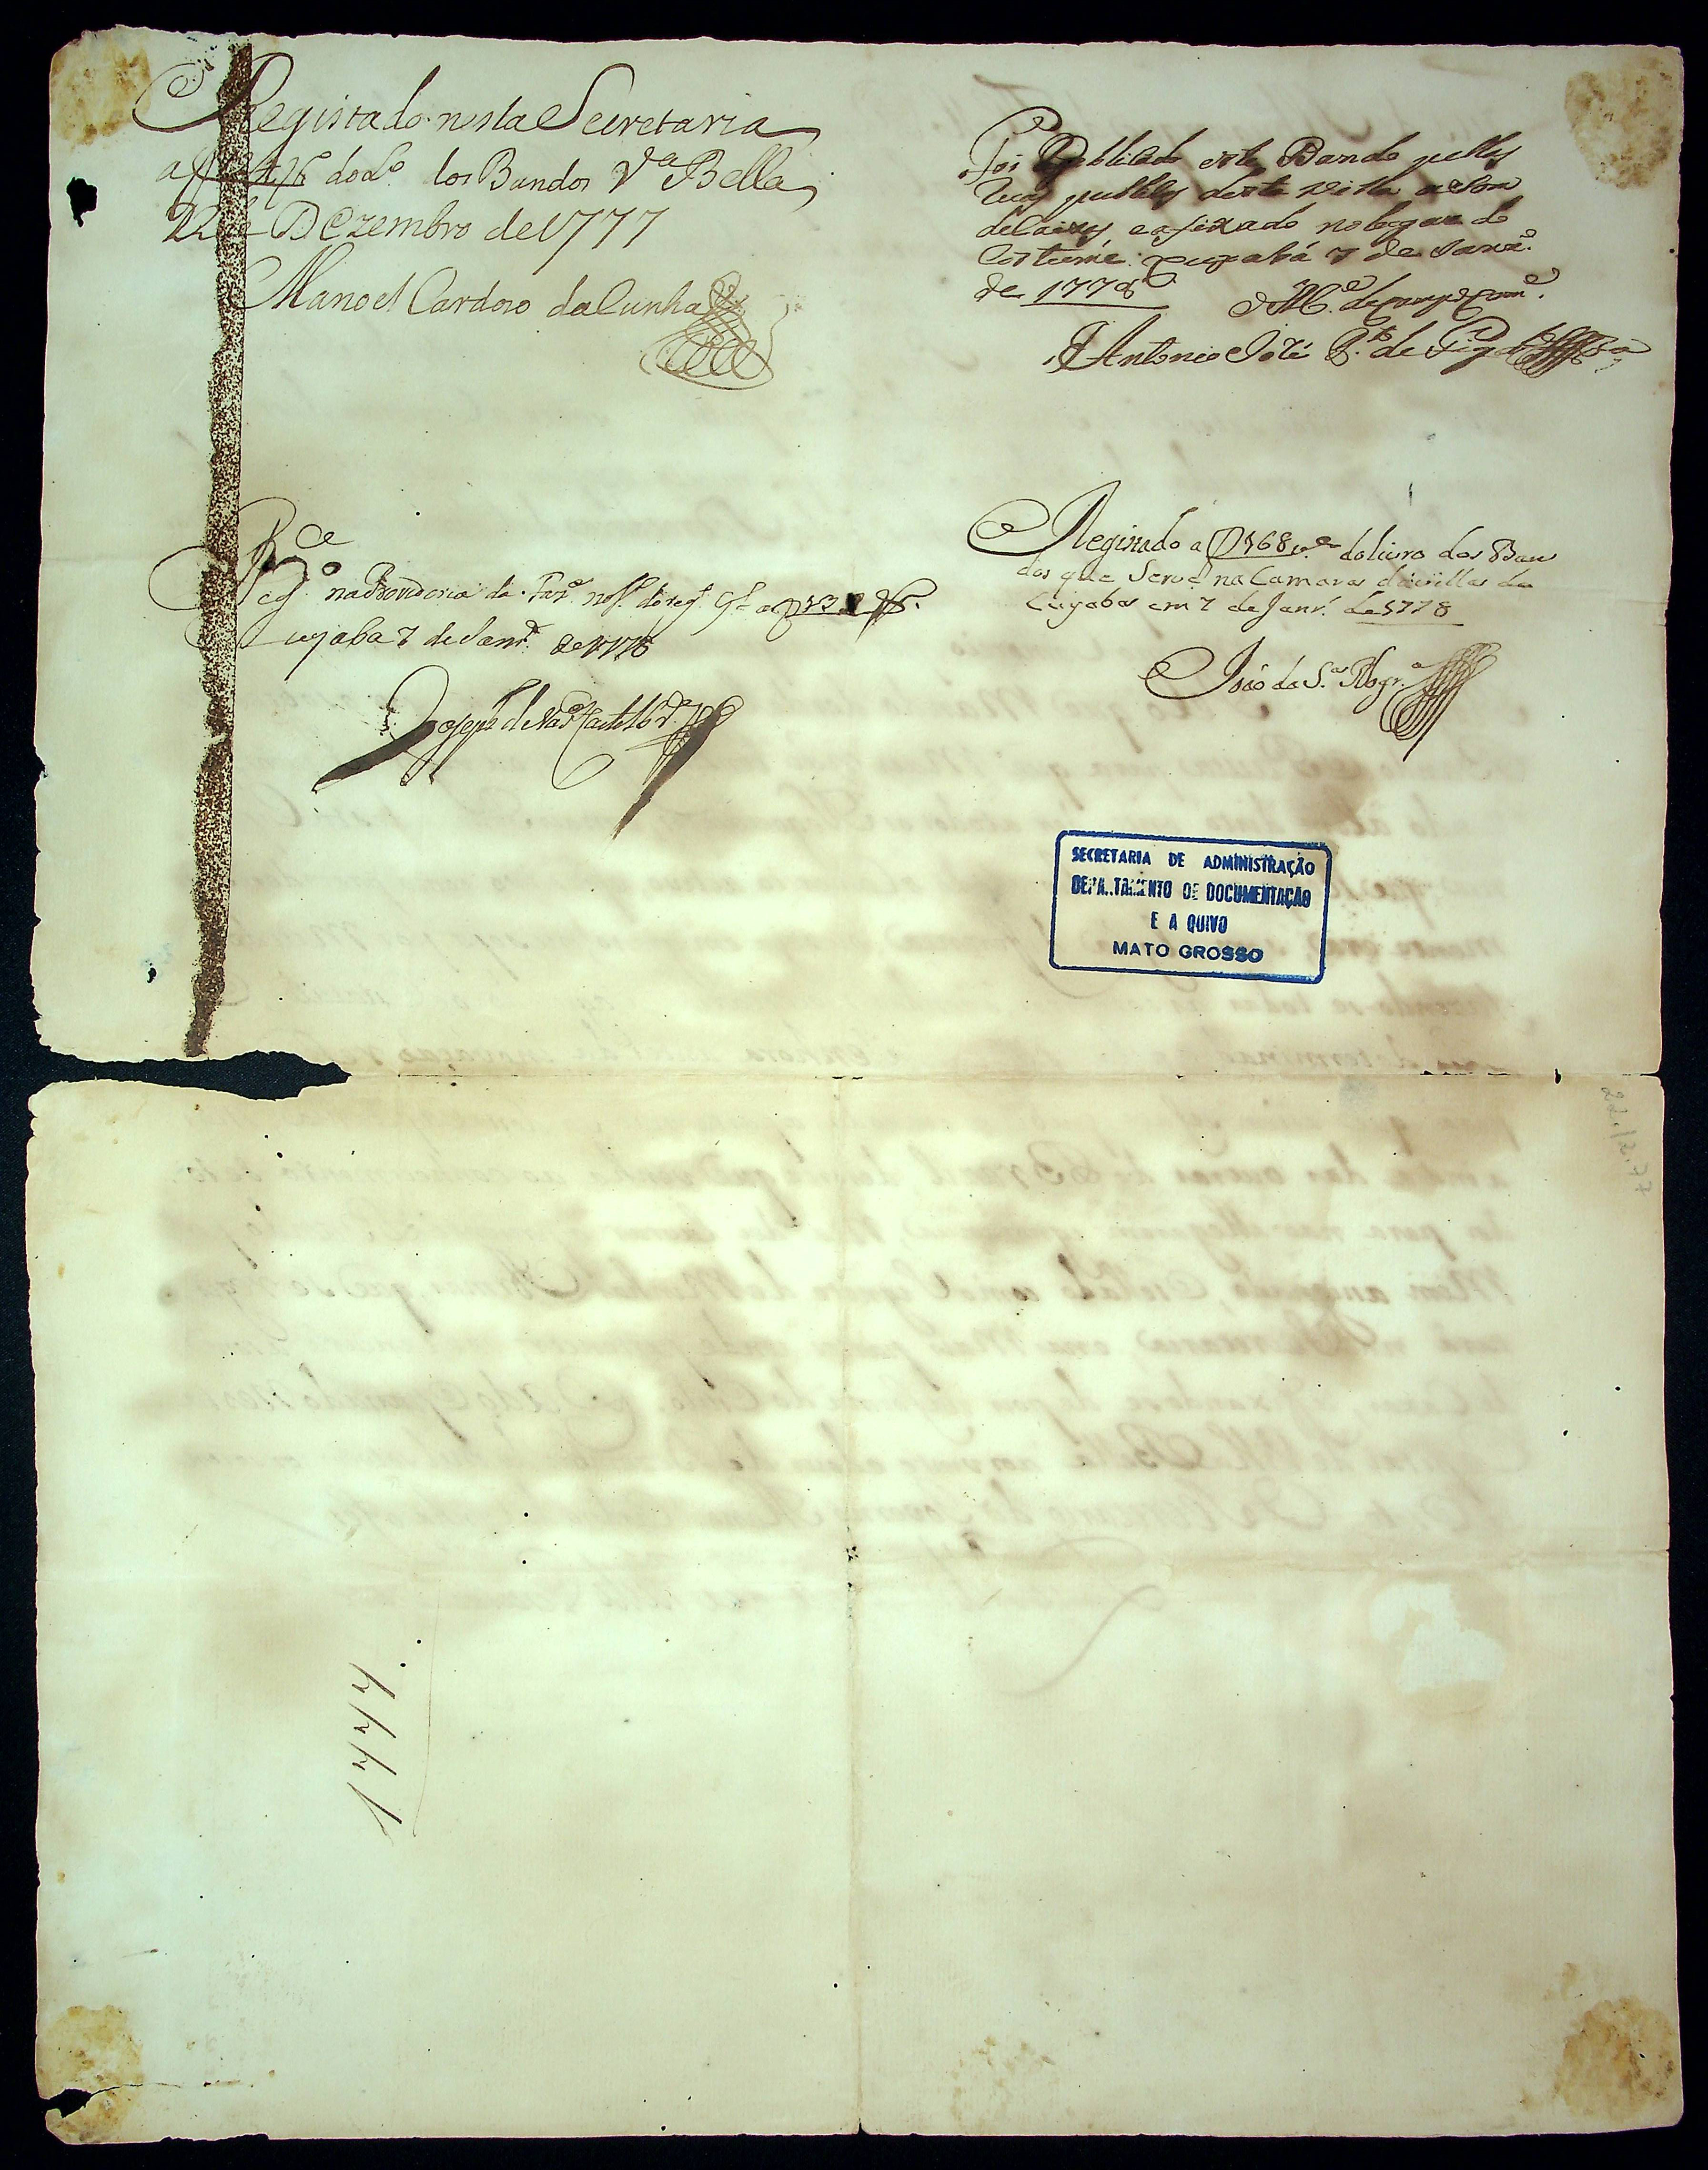 Registado nesta Secretaria
do L.º dos Bandos V.ª Bella
22 de Dezembro de 1777
Manoel Cardozo da Cunha
Foi Publicado este Bando pellas
ruas publicas desta Villa a som
de caixas e afixado no lugar do
costume. Cuyabá 7 de Janr.º
de 1778
Antonio José P.to de Fig.do
Reg.º na Provedoria da Faz.ª no L.º do reg.º G.al a
Cuyaba 7 de Janr.º de 1778
Registado a f 168 v.º do Livro dos Ban
dos que Serve na Camara da villa do
Cuyaba em 7 de Janr.º de 1778
João da S.ª Nogr.ª
SECRETARIA DE ADMINISTRAÇÃO
DEPA..TAMENTO DE DOCUMENTAÇÃO
E A QUIVO
MATO GROSSO
1777